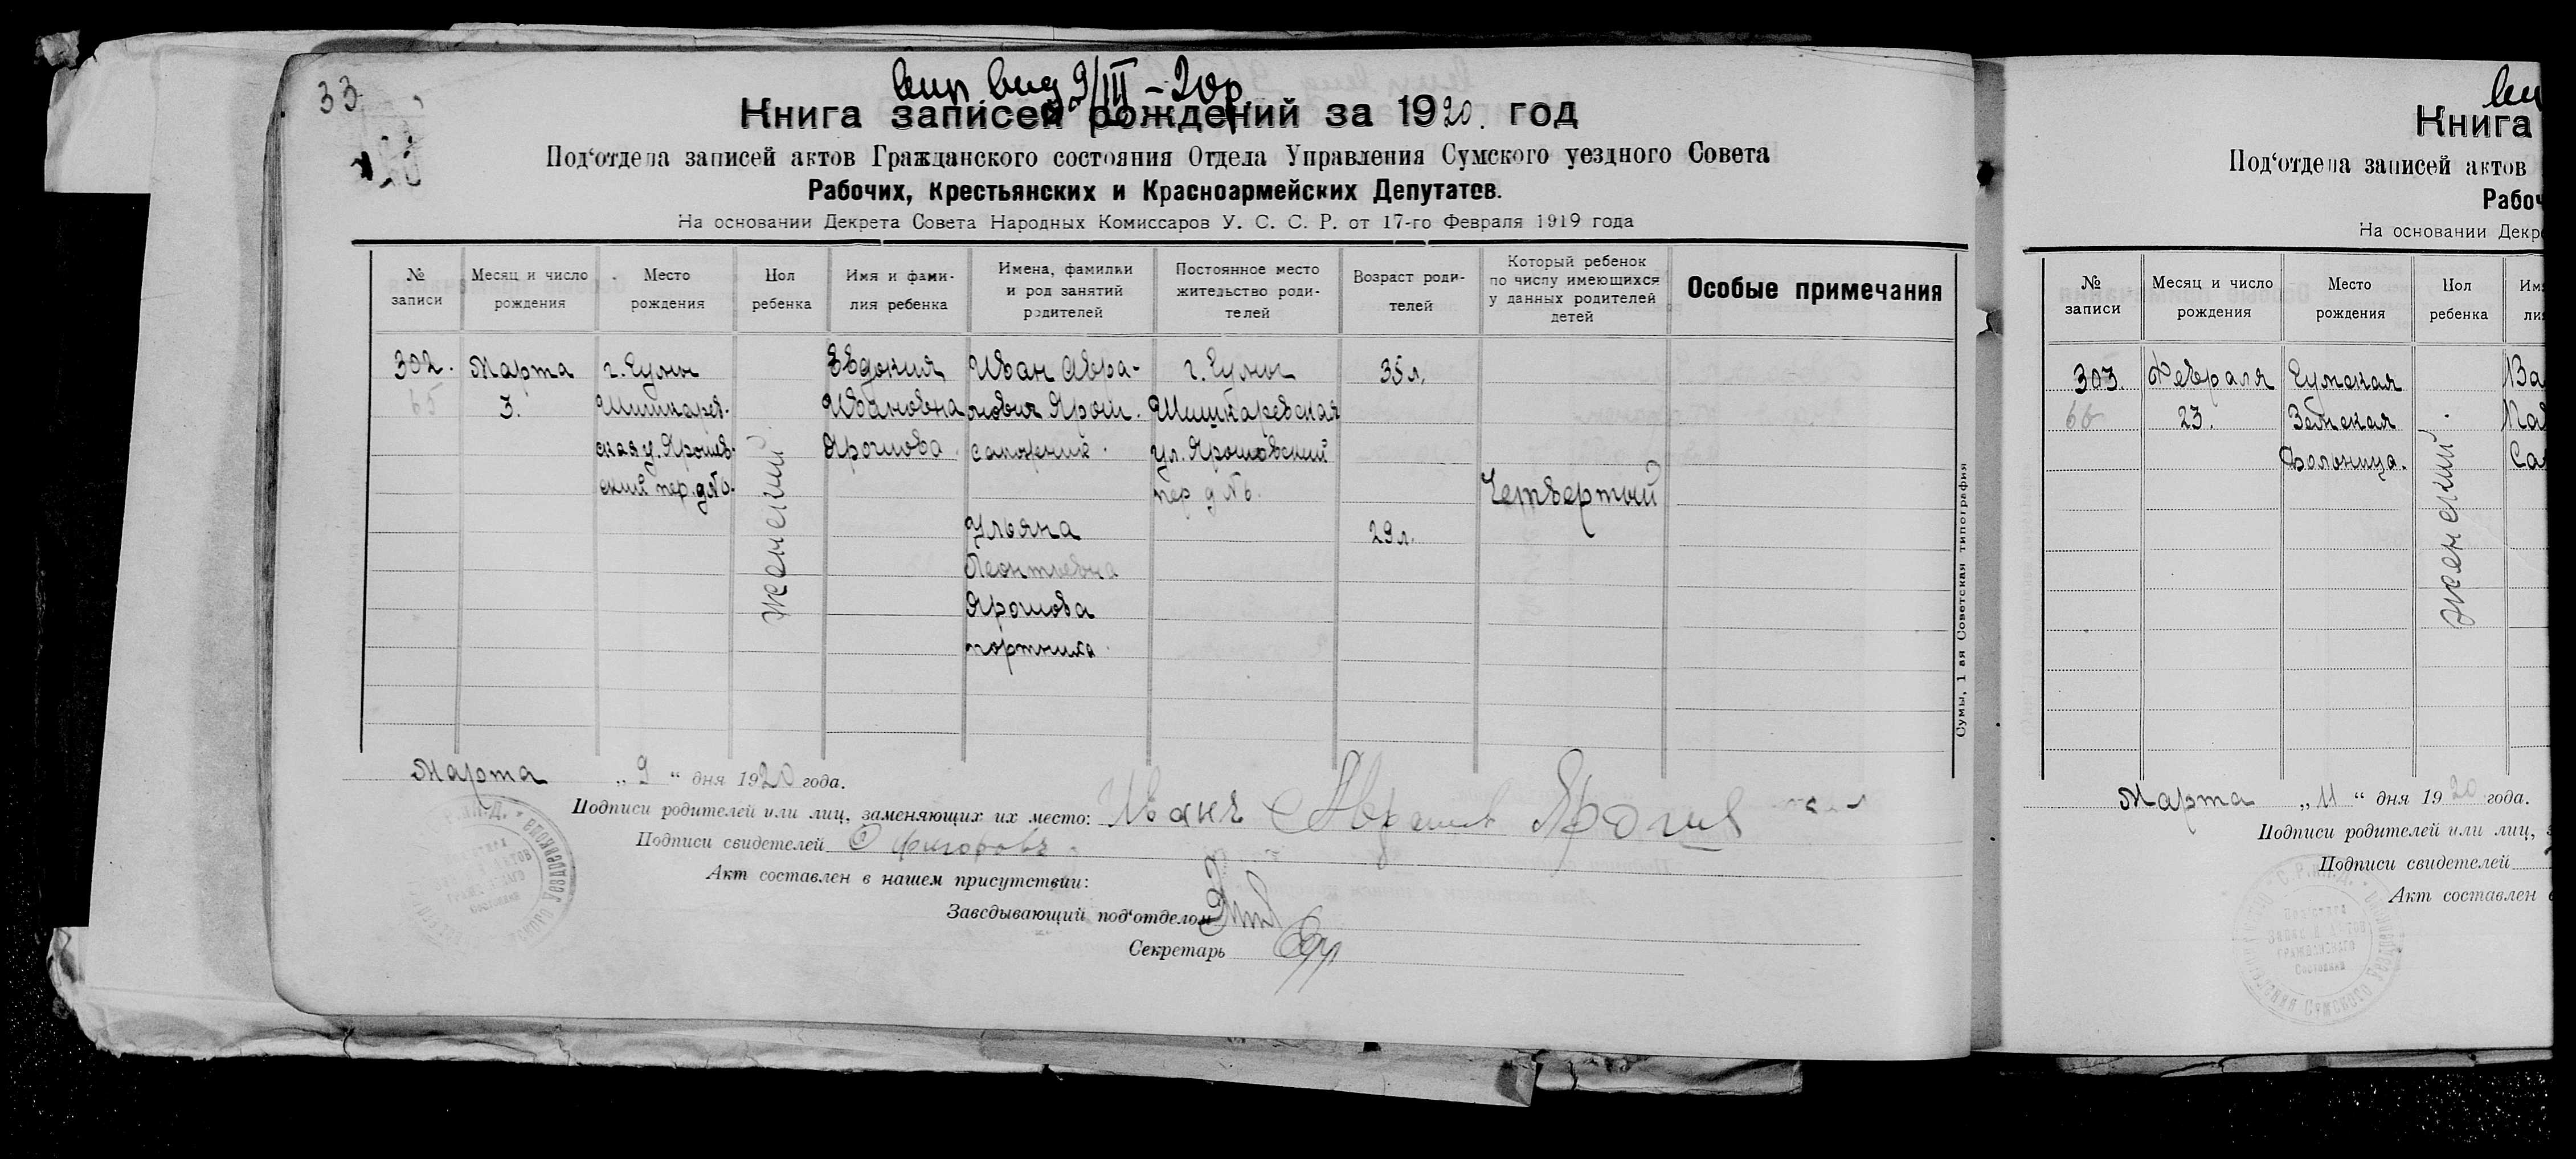 33
вып вид 9/III-20г.
Книга записей рождений за 1920. год
Под‘отдела записей актов Гражданского состояния Отдела Управления Сумского уездного Совета
Рабочих, Крестьянских и Красноармейских Депутатов.
На основании Декрета Совета Народных Комиссаров У. С. С. Р. от 17-го Февраля 1919 года
№ записи
Месяц и число рождения
Место рождения
Пол ребенка
Имя и фами-
лия ребенка
Имена, фамилии
и род занятий
родителей
Постоянное место
жительство роди-
телей
Возраст роди-
телей
Который ребенок
по числу имеющихся
у данных родителей
детей
Особые примечания
302.
65
Марта
3.
г. Сумы
Шишкарев-
ская у. Ярошев-
ский пер. д №6.
женский
Евдокия
Ивановна
Ярошова
Иван Авра-
мович Ярош.
сапожник
Ульяна
Леонтьевна
Ярошова
портниха
г. Сумы
Шишкаревская
ул. Ярошовский
пер д № 6.
35 л.
29 л.
Четвертый
Марта „ 9 “ дня 1920 года.
Подписи родителей или лиц, заменяющих их место: Иванъ Ярош
Подписи свидетелей
Акт составлен в нашем присутствии:
Заведывающий под‘отделом
Секретарь
Сумы, 1 ая Советская типография
Книга
Под‘отдела записей актов
Рабоч
На основании Декре
№ записи
Месяц и число рождения
Место рождения
Пол ребенка
Им
ли
303.
66
Февраля
23.
Сумская
Земская
Больница.
женский
Ва
Пав
Са
Марта „ 11 “ дня 1920 года.
Подписи родителей или лиц,
Подписи свидетелей
Акт составлен